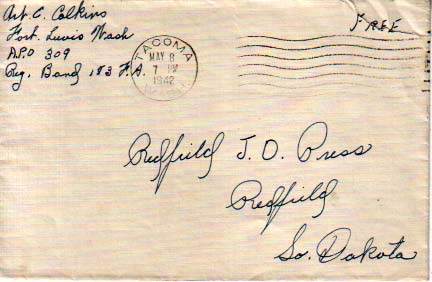 Art. C. Calkins
Fort. Lewis Wash
A.P.O 309
Reg. Band 183 F.A.
TACOMA
MAY 8
1 PM
1942
FREE
Redfield J.O. Press
Redfield
So. Dakota